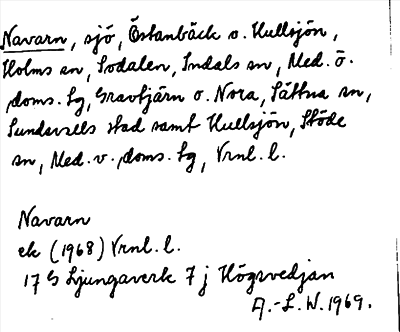 Navarn, sjö, Östanbäck o. Hullsjön,
Holms sn, Sodalen, Indals sn, Med. ö.
doms. sg, Gravtjärn o. Nora, Sättna sn,
Sundsvalls stad samt Hullsjön, Stöde
sn, Med. v. doms. sg, Vrnl. l.
Navarn
ek (1968) Vrnl. l.
17 G Ljungaverk 7 j Högsvedjan
A.-L. W. 1969.